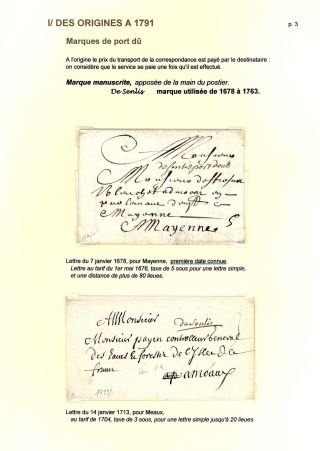 I/ DES ORIGINES A 1791
p. 3
Marques de port dû
A l'origine le prix du transport de la correspondance est payé par le destinataire :
on considère que le service se paie une fois qu'il est effectué.
Marque manuscrite, apposée de la main du postier.
De Senlis marque utilisée de 1678 à 1763.
Monsieur
Monsieur
Mayenne
A Mayenne 5
Lettre du 7 janvier 1678, pour Mayenne, première date connue.
Lettre au tarif du 1er mai 1676, taxe de 5 sous pour une lettre simple,
et une distance de plus de 80 lieues.
A Monsieur de Senlis
Monsieur payen controlleur general
des Eaux et forests de
france
a meaux
1713
Lettre du 14 janvier 1713, pour Meaux,
au tarif de 1704, taxe de 3 sous, pour une lettre simple jusqu'à 20 lieues.